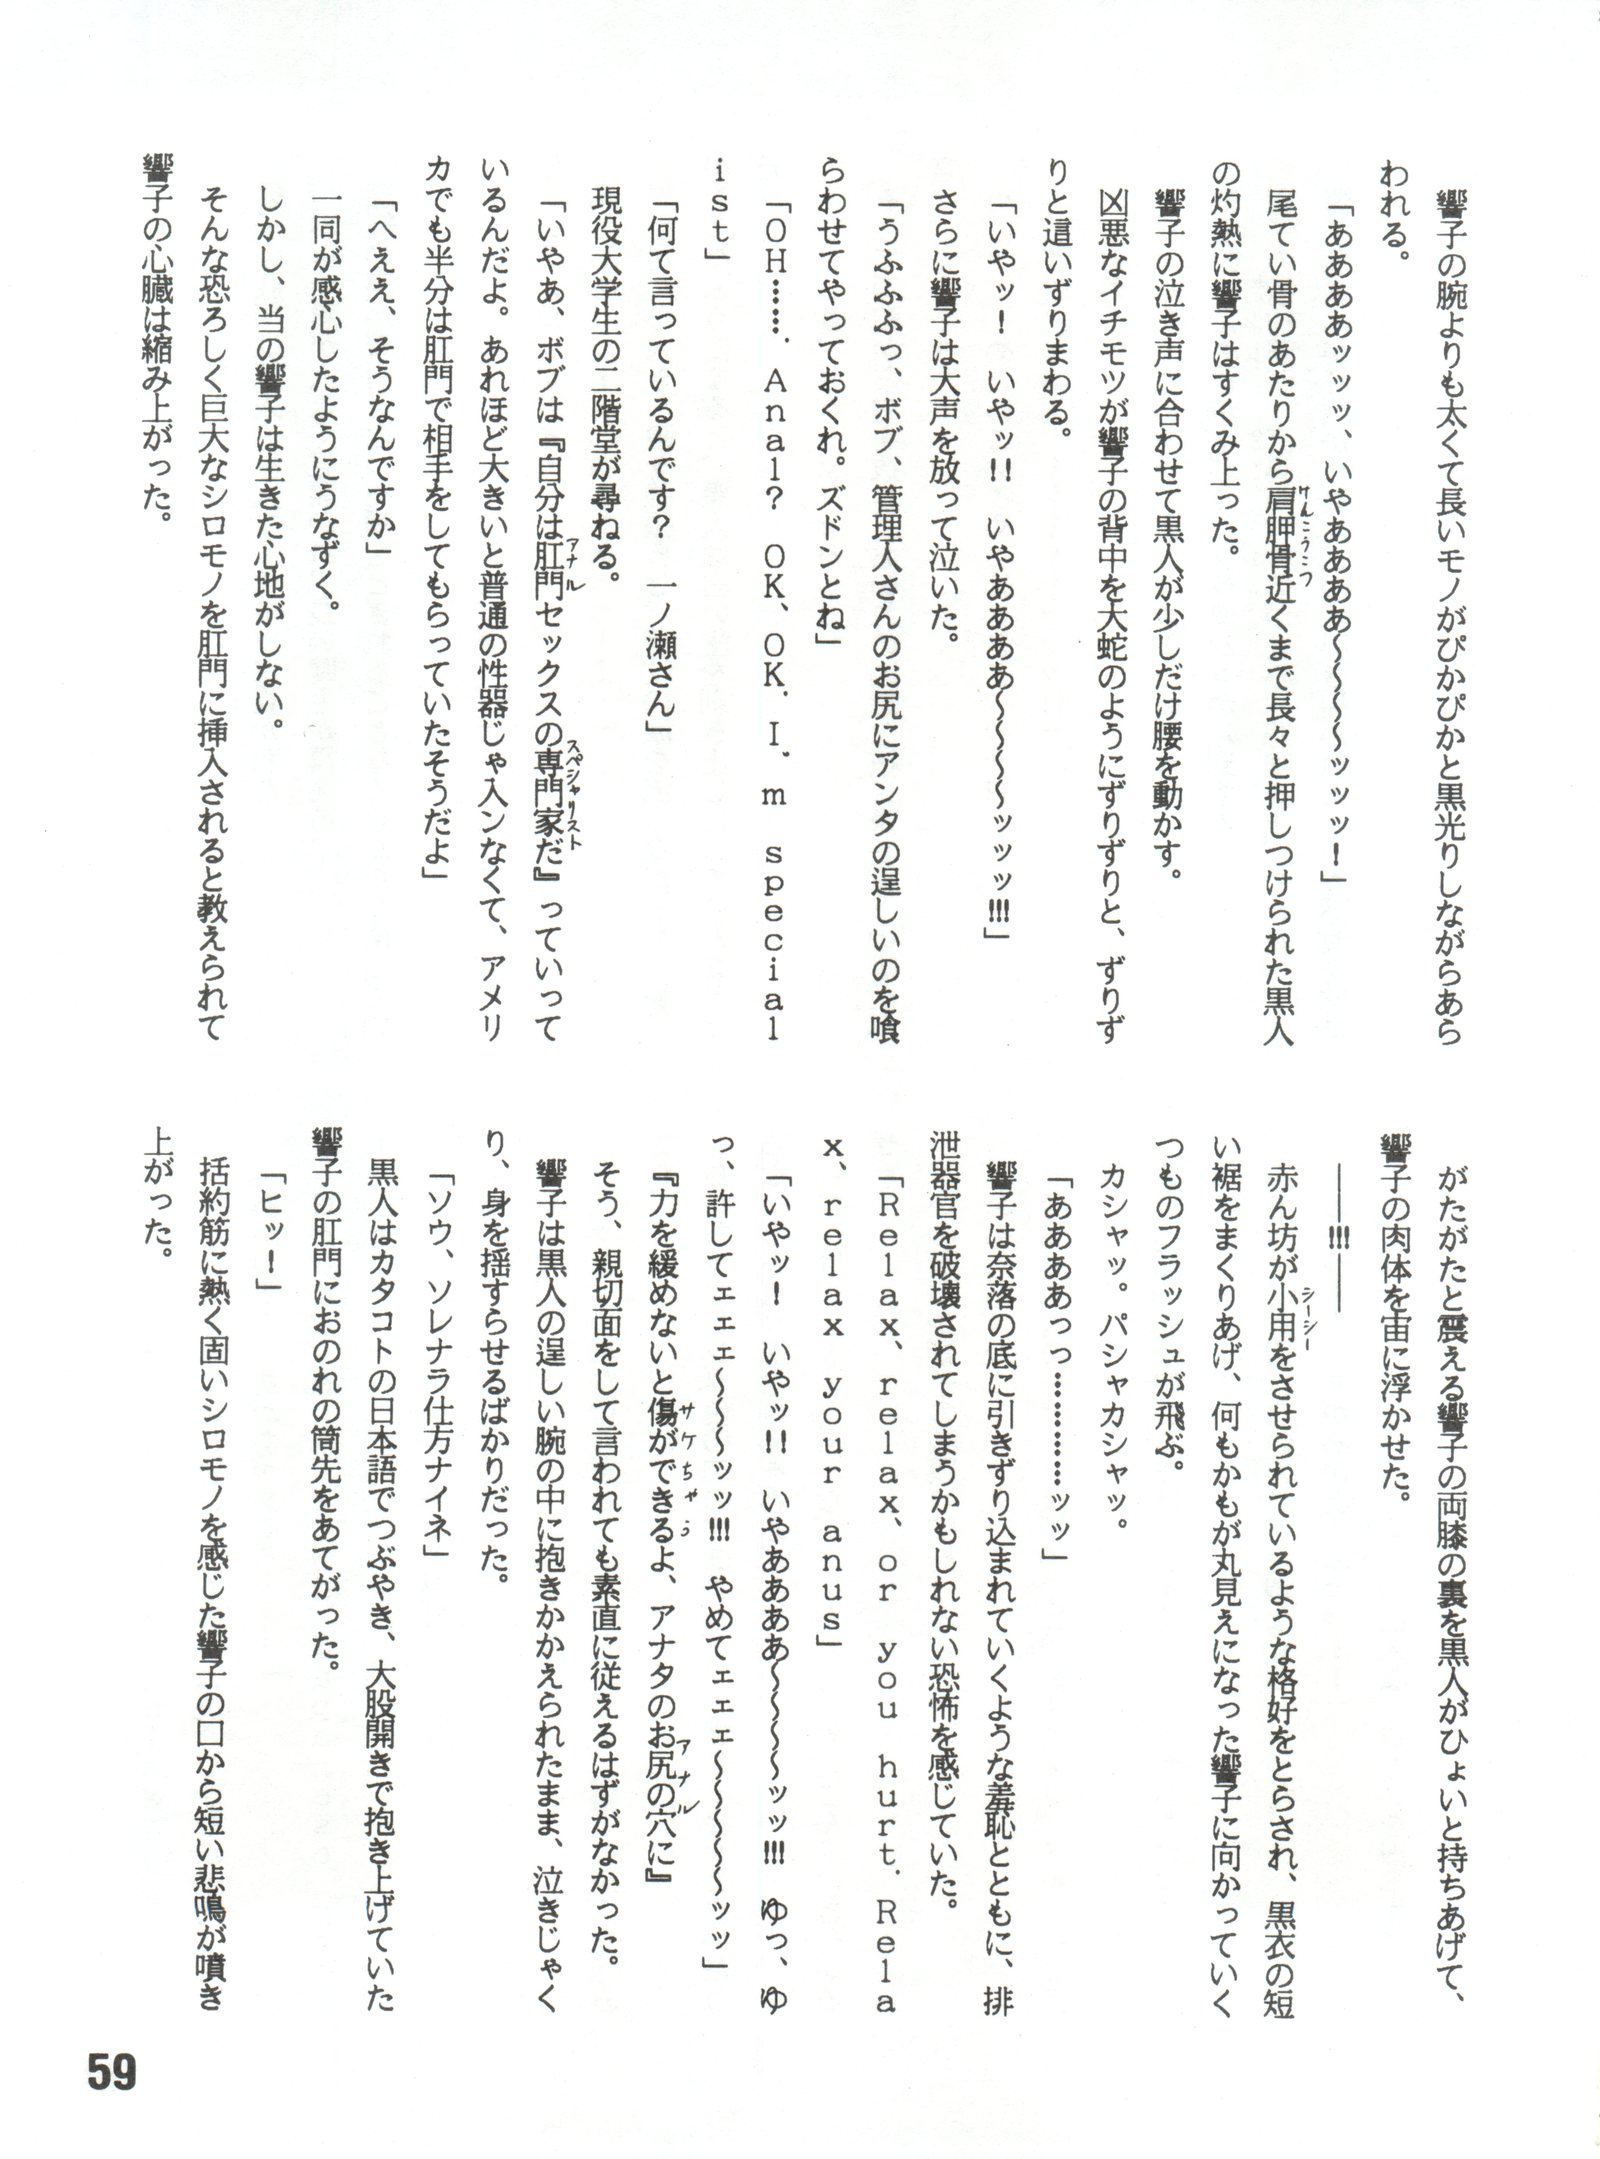 響子の腕よりも太くて長いモノがぴかぴかと黒光りしながらあら
われる。
「ああああッッッ、いやああああ～～～～ッッッ！」
尾てい骨のあたりから肩胛骨近くまで長々と押しつけられた黒人
の灼熱に響子はすくみ上った。
響子の泣き声に合わせて黒人が少しだけ腰を動かす。
凶悪なイチモツが響子の背中を大蛇のようにずりずりと、ずりず
りと這いずりまわる。
「いやッ！　いやッ!!　いやああああ～～～～ッッッ!!!」
さらに響子は大声を放って泣いた。
「うふふふっ、ボブ、管理人さんのお尻にアンタの逞しいのを喰
らわせてやっておくれ。ズドンとね」
「OH……. Anal? OK、OK. I'm special
ist」
「何て言っているんです？　一ノ瀬さん」
現役大学生の二階堂が尋ねる。
「いやあ、ボブは『自分は肛門アナルセックスの専門家スペシャリストだ』っていって
いるんだよ。あれほど大きいと普通の性器じゃ入ンなくて、アメリ
カでも半分は肛門で相手をしてもらっていたそうだよ」
「へええ、そうなんですか」
一同が感心したようにうなずく。
しかし、当の響子は生きた心地がしない。
そんな恐ろしく巨大なシロモノを肛門に挿入されると教えられて
響子の心臓は縮み上がった。
がたがたと震える響子の両膝の裏を黒人がひょいと持ちあげて、
響子の肉体を宙に浮かせた。
――!!!――
赤ん坊が小用シーシーをさせられているような格好をとらされ、黒衣の短
い裾をまくりあげ、何もかもが丸見えになった響子に向かっていく
つものフラッシュが飛ぶ。
カシャッ。パシャカシャッ。
「ああああっっ…………ッッ」
響子は奈落の底に引きずり込まれていくような羞恥とともに、排
泄器官を破壊されてしまうかもしれない恐怖を感じていた。
「Relax、relax、or you hurt. Rela
x、relax your anus」
「いやッ！　いやッ!!　いやああああ～～～～ッッ!!!　ゆっ、ゆ
っ、許してェェェ～～～ッッ!!!　やめてェェェ～～～～～ッッ」
『力を緩めないと傷ができるサケちゃうよ、アナタのお尻の穴アナルに』
そう、親切面をして言われても素直に従えるはずがなかった。
響子は黒人の逞しい腕の中に抱きかかえられたまま、泣きじゃく
り、身を揺すらせるばかりだった。
「ソウ、ソレナラ仕方ナイネ」
黒人はカタコトの日本語でつぶやき、大股開きで抱き上げていた
響子の肛門におのれの筒先をあてがった。
「ヒッ！」
括約筋に熱く固いシロモノを感じた響子の口から短い悲鳴が噴き
上がった。
肩胛骨けんこうこつ
59